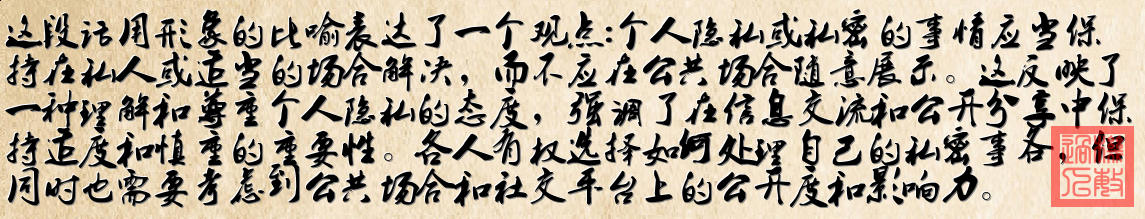 这段话用形象的比喻表达了一个观点:个人隐私或私密的事情应当保
持在私人或适当的场合解决，而不应在公共场合随意展示。这反映了
一种理解和尊重个人隐私的态度，强调了在信息交流和公开分享中保
持适度和慎重的重要性。各人有权选择如何处理自己的私密事务，但
同时也需要考虑到公共场合和社交平台上的公开度和影响力。